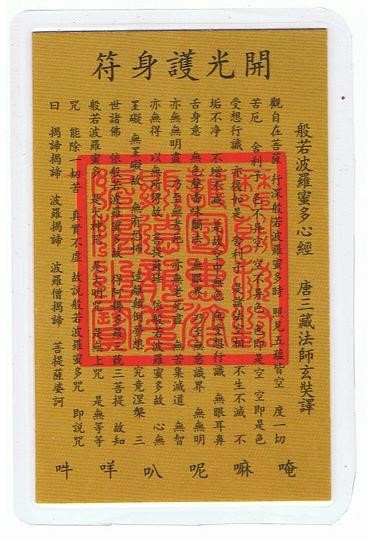 開光護身符
般若波羅蜜多心經 唐三藏法師玄奘譯
觀自在菩薩 行深般若波羅蜜多時 照見五蘊皆空 度一切
苦厄 舍利子 色不異空 空不異色 色即是空 空即是色
受想行識 亦復如是 舍利子 是諸法空相 不生不滅 不
垢不净 不增不減 是故空中無色 無受想行識 無眼耳鼻
舌身意 無色聲香味觸法 無眼界 乃至無意識界 無無明
亦無無明盡 乃至無老死 亦無老死盡 無苦集滅道 無智
亦無得 以無所得故 菩提薩埵 依般若波羅蜜多故 心無
罣礙 無罣礙故 無有恐怖 遠離顛倒夢想 究竟涅槃 三
世諸佛 依般若波羅蜜多故 得阿耨多羅三藐三菩提 故知
般若波羅蜜多 是大神咒 是大明咒 是無上咒 是無等等
咒 能除一切苦 真實不虛 故說般若波羅蜜多咒 即說咒
曰 揭諦揭諦 波羅揭諦 波羅僧揭諦 菩提薩婆訶
唵嘛呢叭咩吽